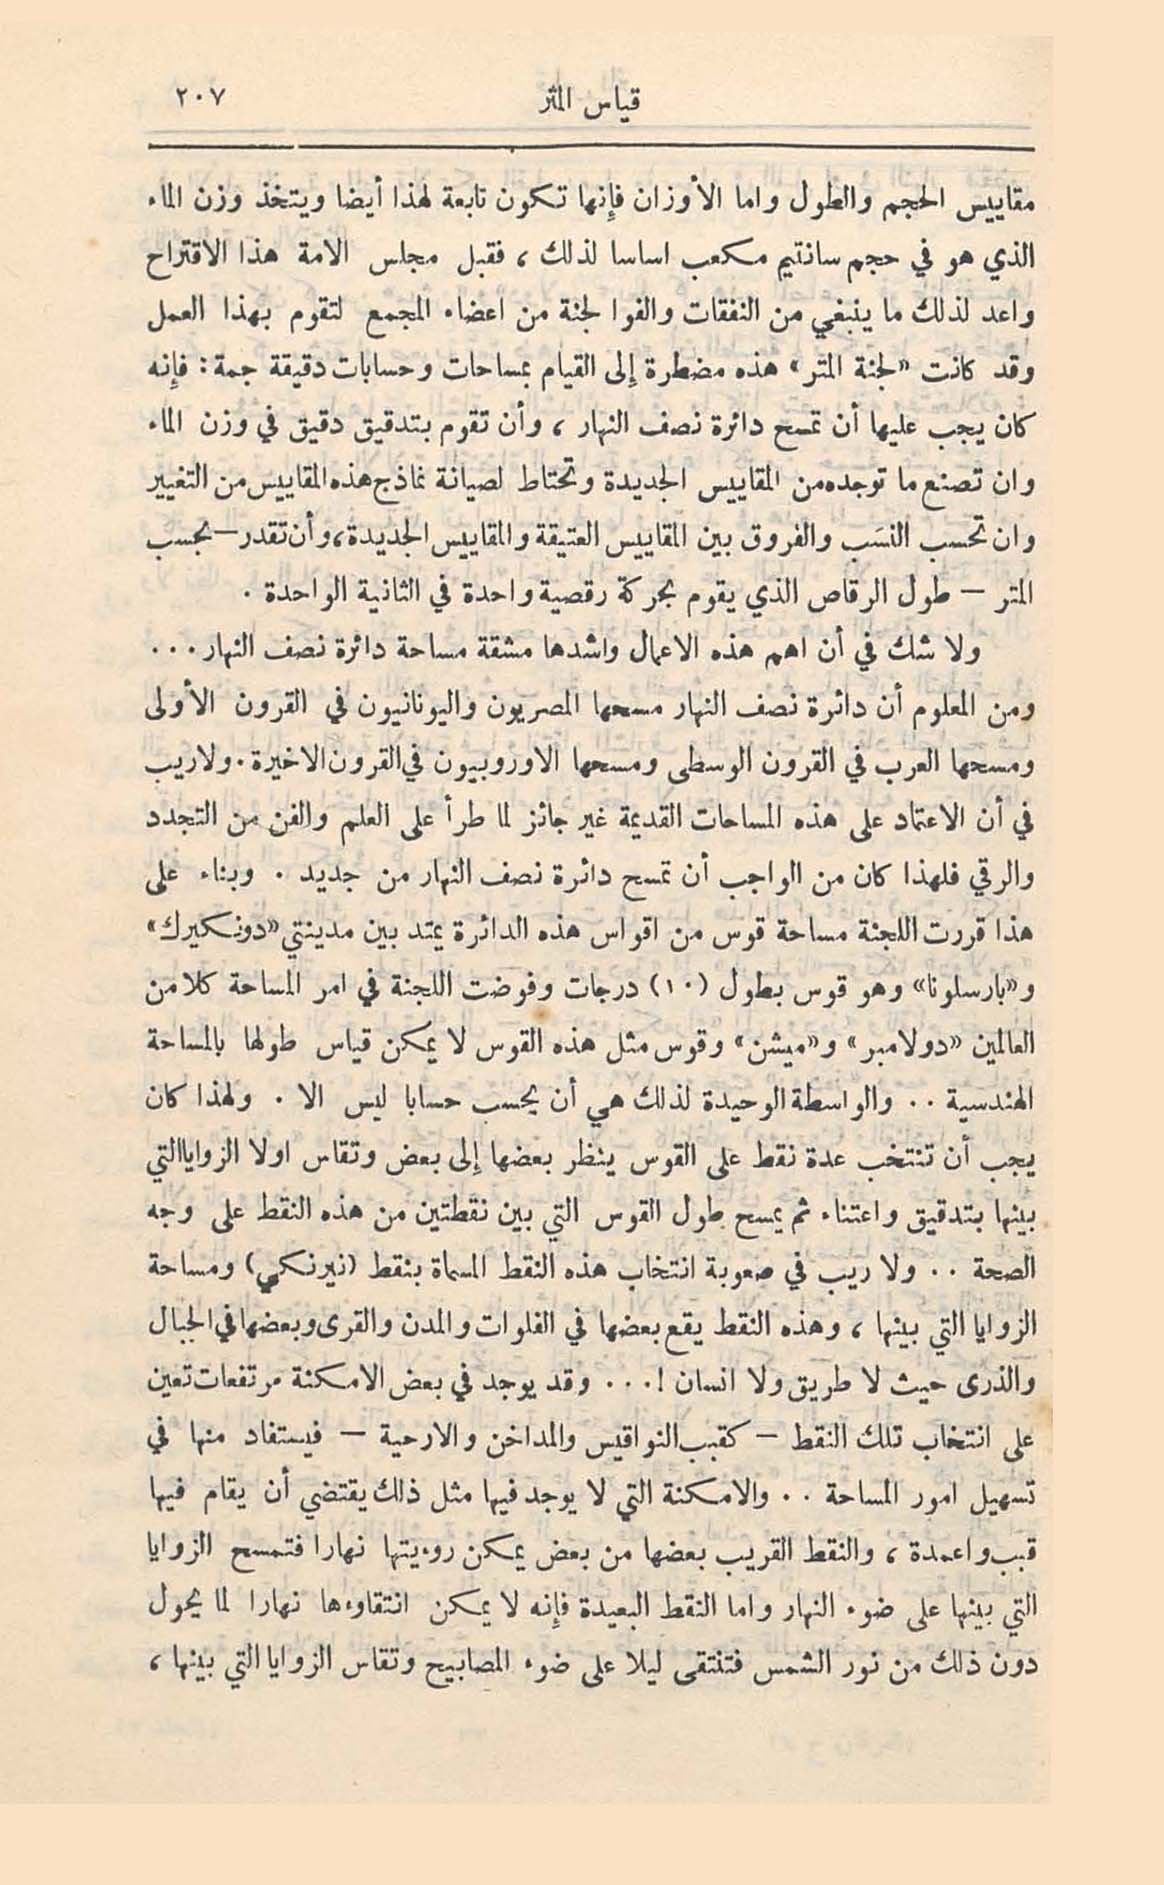 قياس المتر ٢٠٧
مقاييس الحجم والطول واما الأوزان فإنها تكون تابعة لهذا أيضا ويتخذ وزن الماء
الذي هو في حجم سانتيم مكعب اساسا لذلك ، فقبل مجلس الامة هذا الاقتراح
واعد لذلك ما ينبغي من النفقات والفوا لجنة من اعضاء المجمع لتقوم بهذا العمل
وقد كانت «لجنة المتر» هذه مضطرة إلى القيام بمساحات وحسابات دقيقة جمة : فإنه
كان يجب عليها أن تمسح دائرة نصف النهار ، وأن تقوم بتدقيق دقيق في وزن الماء
وان تصنع ما توجده من المقاييس الجديدة وتحتاط لصيانة نماذج هذه المقاييس من التغيير
وان تحسب النسَب والفروق بين المقاييس العتيقة والمقاييس الجديدة، وأن تقدر — بحسب
المتر — طول الرقاص الذي يقوم بحركة رقصية واحدة في الثانية الواحدة .
ولا شك في أن اهم هذه الاعمال واشدها مشقة مساحة دائرة نصف النهار ...
ومن المعلوم أن دائرة نصف النهار مسحها المصريون واليونانيون في القرون الأولى
ومسحها العرب في القرون الوسطى ومسحها الاوروبيون في القرون الاخيرة . ولاريب
في أن الاعتماد على هذه المساحات القديمة غير جائز لما طرأ على العلم والفن من التجدد
والرقي فلهذا كان من الواجب أن تمسح دائرة نصف النهار من جديد . وبناء على
هذا قررت اللجنة مساحة قوس من اقواس هذه الدائرة يمتد بين مدينتي «دونكيرك»
و«بارسلونا» وهو قوس بطول (١٠) درجات وفوضت اللجنة في امر المساحة كلا من
العالمين «دولامبر» و«ميشن» وقوس مثل هذه القوس لا يمكن قياس طولها بالمساحة
الهندسية .. والواسطة الوحيدة لذلك هي أن يحسب حسابا ليس الا . ولهذا كان
يجب أن تنتخب عدة نقط على القوس ينظر بعضها إلى بعض وتقاس اولا الزوايا التي
بينها بتدقيق واعتناء ثم يمسح طول القوس التي بين نقطتين من هذه النقط على وجه
الصحة .. ولا ريب في صعوبة انتخاب هذه النقط المسماة بنقط (نيرنكي) ومساحة
الزوايا التي بينها ، وهذه النقط يقع بعضها في الفلوات والمدن والقرى وبعضها في الجبال
والذرى حيث لا طريق ولا انسان !... وقد يوجد في بعض الامكنة مرتفعات تعين
على انتخاب تلك النقط — كقبب النواقيس والمداخن والارحية — فيستفاد منها في
تسهيل امور المساحة .. والامكنة التي لا يوجد فيها مثل ذلك يقتضي أن يقام فيها
قبب واعمدة ، والنقط القريب بعضها من بعض يمكن روءيتها نهارا فتمسح الزوايا
التي بينها على ضوء النهار واما النقط البعيدة فإنه لا يمكن انتقاوءها نهارا لما يحول
دون ذلك من نور الشمس فتنتقى ليلا على ضوء المصابيح وتقاس الزوايا التي بينها ،